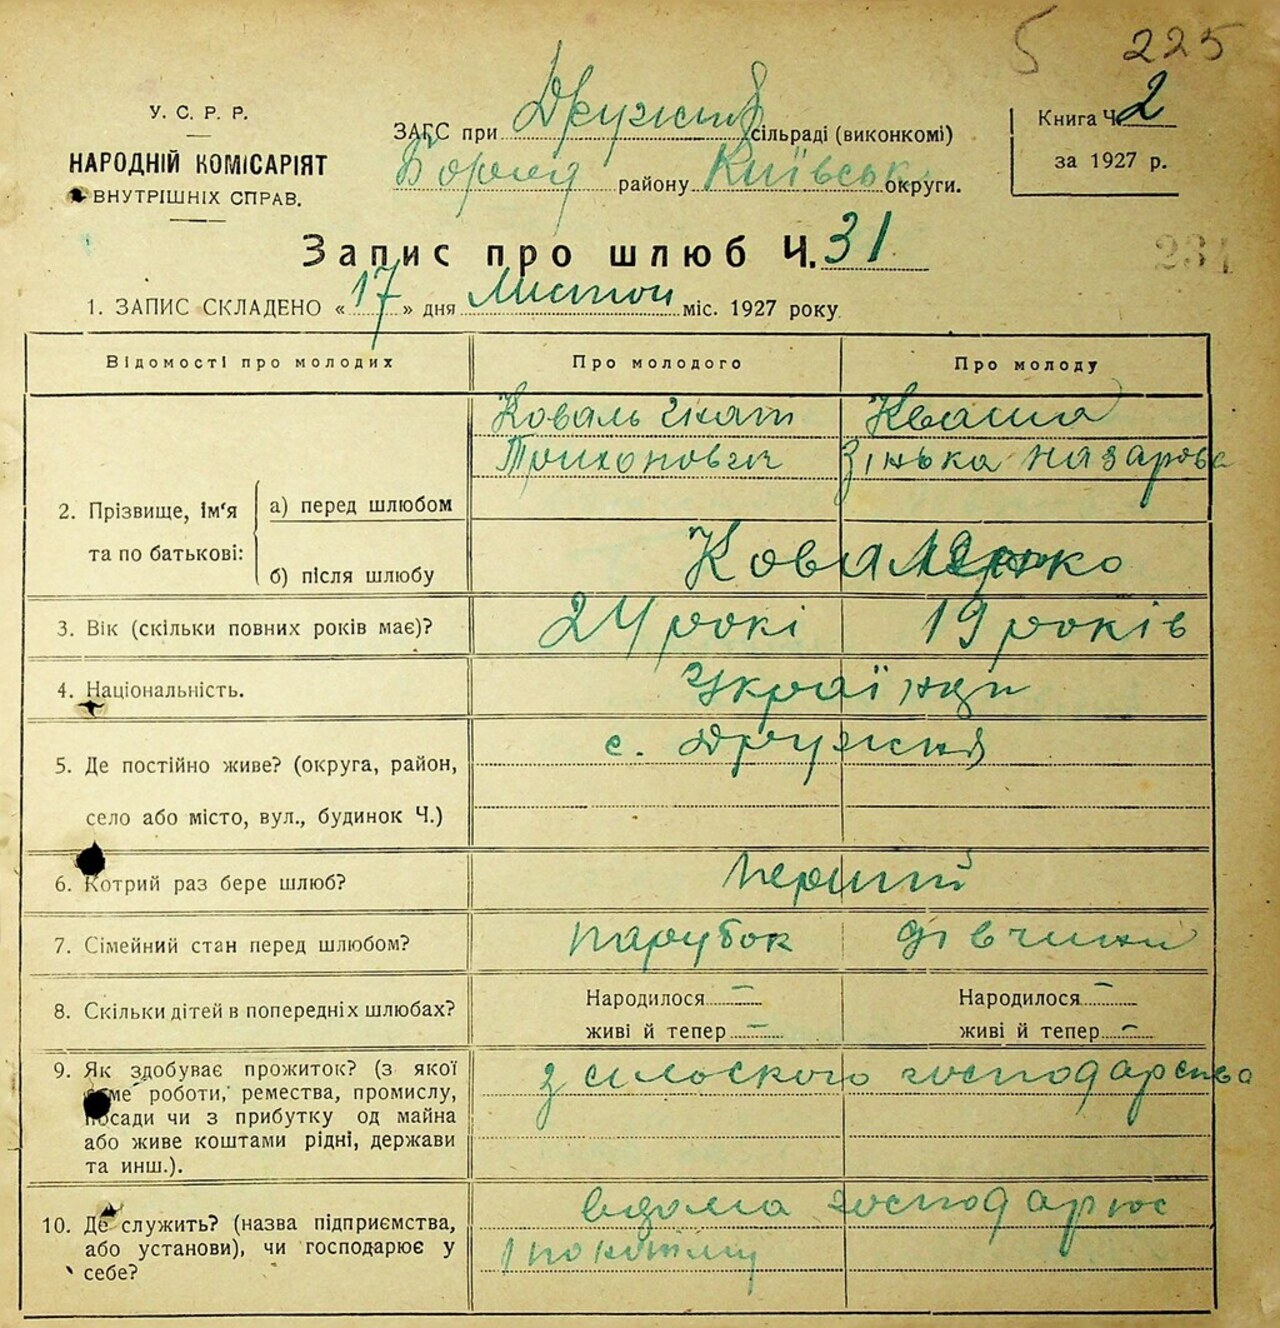 5 225
У. С. Р. Р.
НАРОДНІЙ КОМІСАРІЯТ
ВНУТРІШНІХ СПРАВ.
ЗАГС при Дружня сільраді (виконкомі)
району Київськ округи.
Книга Ч. 2
за 1927 р.
Запис про шлюб Ч. 31
231
1. ЗАПИС СКЛАДЕНО « 17 » дня Листоп міс. 1927 року
Відомості про молодих
Про молодого
Про молоду
2. Прізвище, ім'я
та по батькові:
а) перед шлюбом
б) після шлюбу
Коваль Гнат
Трихонович
Кваша
Зінька Назарова
Коваленко
3. Вік (скільки повних років має)?
24 рокі
19 років
4. Національність.
Українци
5. Де постійно живе? (округа, район,
село або місто, вул., будинок Ч.)
с. Дружня
6. Котрий раз бере шлюб?
перший
7. Сімейний стан перед шлюбом?
парубок
дівчина
8. Скільки дітей в попередніх шлюбах?
Народилося –
живі й тепер –
Народилося –
живі й тепер –
9. Як здобуває прожиток? (з якої
саме роботи, ремества, промислу,
посади чи з прибутку од майна
або живе коштами рідні, держави
та инш.).
з сільского господарства
10. Де служить? (назва підприємства,
або установи), чи господарює у
себе?
вдома господарює